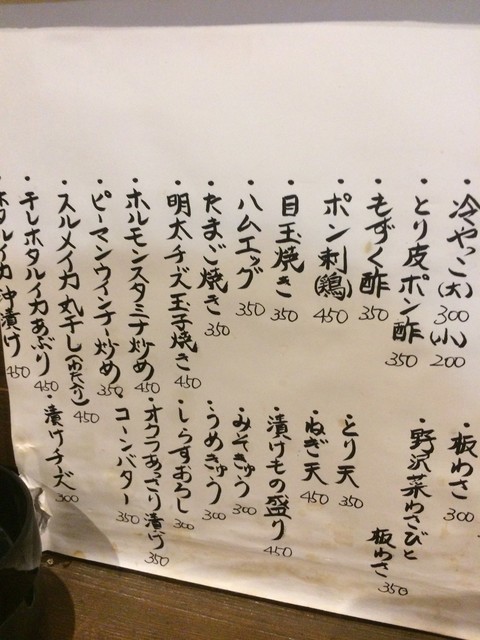 ・冷やっこ(大)300 (小)200
・とり皮ポン酢 350
・もずく酢 350
・ポン刺(鶏) 450
・目玉焼き 350
・ハムエッグ 350
・たまご焼き 350
・明太チーズ玉子焼き 450
・ホルモンスタミナ炒め 450
・ピーマンウインナー炒め 350
・スルメイカ丸干し(わた入り) 450
・干しホタルイカあぶり 450
ホタルイカ沖漬け 450
・板わさ 300
・野沢菜わさびと板わさ 350
・とり天 350
・ねぎ天 450
・漬けもの盛り 450
・みそきゅう 300
・うめきゅう 300
・しらすおろし 300
・オクラあっさり漬け 350
・コーンバター 350
・漬けチーズ 300